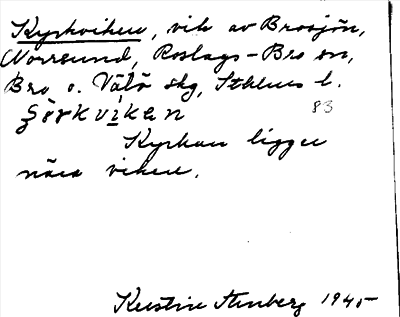 Kyrkviken, vik av Brosjön,
Norrsund, Roslags-Bro sn,
Bro o. Vätö skg, Sthlms l.
ʂörkvikɛn 83
Kyrkan ligger
nära viken.
Kerstin Stenberg 1945